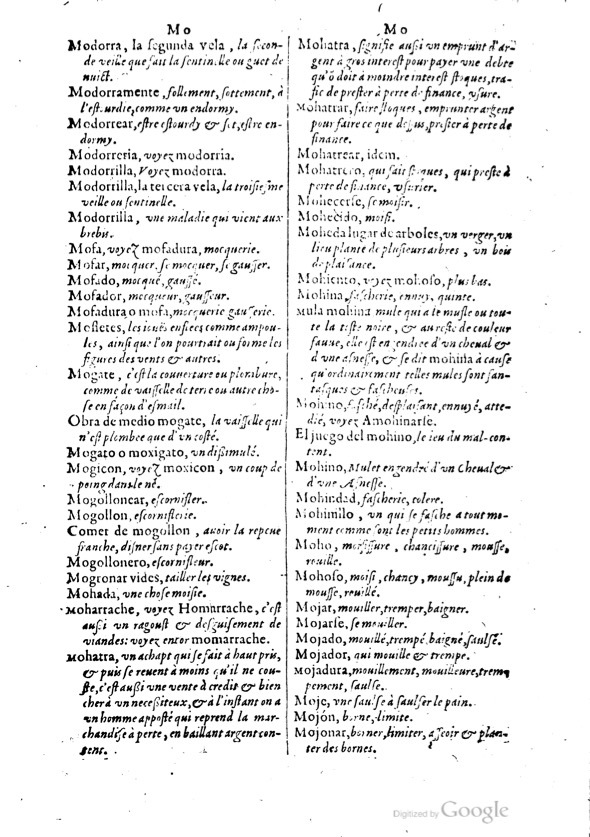 Mo
Modorra, la segunda vela, la secon-
de veille que fait la sentinelle ou guet de
nuict.
Modorramente, follement, sottement, à
l'estourdie, comme un endormy.
Modorrear, estre estourdy & sot, estre en-
dormy.
Modorreria, voyez modorria.
Modorrilla, Voyez modorra.
Modorrilla, la tercera vela, la troisiesme
veille ou sentinelle.
Modorrilla, une maladie qui vient aux
brebis.
Mofa, voyez mofadura, mocquerie.
Mofar, mocquer, se mocquer, se gausser.
Mofado, mocqué, gaussé.
Mofador, mocqueur, gausseur.
Mofadura o mofa, mocquerie gausserie.
Mofletes, les iouës enflees comme ampou-
les, ainsi que l'on pourtrait ou forme les
figures des vents & autres.
Mogate, c'est la couverture ou plombure,
comme de vaisselle de terre ou autre cho-
se en façon d'esmail.
Obra de medio mogate, la vaisselle qui
n'est plombee que d'un costé.
Mogato o moxigato, un dissimulé.
Mogicon, voyez moxicon, un coup de
poing dans le né.
Mogolloncar, escornifler.
Mogollon, escorniflerie.
Comer de mogollon, avoir la repeue
franche, disner sans payer escot.
Mogollonero, escornifleur.
Mogronar vides, tailler les vignes.
Mohada, une chose moisie.
Moharrache, voyez Homarrache, c'est
aussi un ragoust & desguisement de
viandes: voyez encor momarrache.
Mohatra, un achapt qui se fait à haut pris,
& puis se revent à moins qu'il ne cou-
ste, c'est aussi une vente à credit & bien
cher à un necessiteux, & à l'instant on a
un homme apposté qui reprend la mar-
chandise à perte, en baillant argent con-
tent.
Mo
Mohatra, signifie aussi un emprunt d'ar-
gent à gros interest pour payer une debte
qu'õ doit à moindre interest stoques, tra-
fic de prester à perte de finance, usure.
Mohatrar, faire stoques, emprunter argent
pour faire ce que dessus, prester à perte de
finance.
Mohatrear, idem.
Mohatrero, qui fait stoques, qui preste à
perte de finance, usurier.
Mohecerse, se moisir.
Mohecido, moisi.
Moheda lugar de arboles, un verger, un
lieu planté de plusieurs arbres, un bois
de plaisance.
Mohiento, voyez mohoso, plus bas.
Mohina, fascherie, ennuy, quinte.
Mula mohina mule qui a le musle ou tou-
te la teste noire, & au reste de couleur
fauve, elle est engendree d'un cheval &
d'une asnesse, & se dit mohina à cause
qu'ordinairement telles mules sont fan-
tasques & fascheuses.
Mohino, fasché, desplaisant, ennuyé, atte-
dié, voyez Amohinarse.
El juego del mohino, le ieu du mal-con-
tent.
Mohino, Mulet engendré d'un Cheval &
d'une Asnesse.
Mohindad, fascherie, colere.
Mohinillo, un qui se fasche a tout mo-
ment comme sont les petits hommes.
Moho, moisissure, chancissure, mousse,
rouille.
Mohoso, moisi, chancy, moussu, plein de
mousse, rouillé.
Mojar, mouiller, tremper, baigner.
Mojarse, se mouiller.
Mojado, mouillé, trempé, baigné, saulsé.
Mojador, qui mouille & trempe.
Mojadura, mouillement, mouilleure, trem-
pement, saulse.
Moje, une saulse à saulser le pain.
Mojón, borne, limite.
Mojonar, borner, limiter, asseoir & plan-
ter des bornes.
Digitized by Google